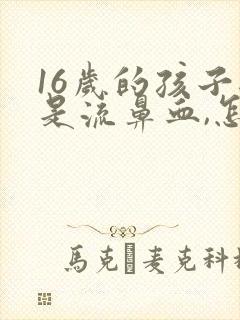 16歲的孩子
是流鼻血,怎
馬克 麥克科